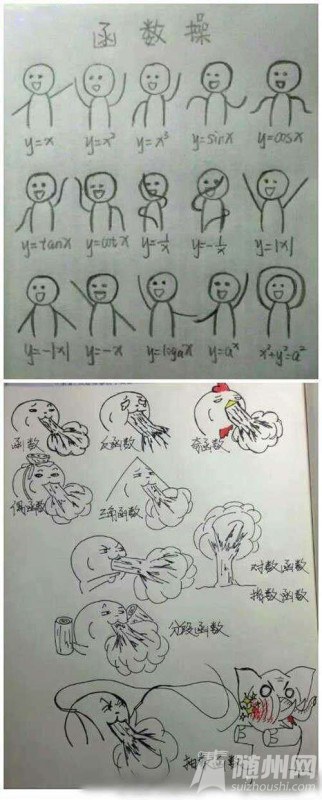 函数操
y=x y=x² y=x³ y=sinx y=cosx
y=tanx y=cotx y=1/x y=-1/x y=|x|
y=-|x| y=-x y=logₐx y=aˣ x²+y²=a²
函数 反函数 奇函数
偶函数 三角函数
对数函数
指数函数
分段函数
随州网
suizhou.com